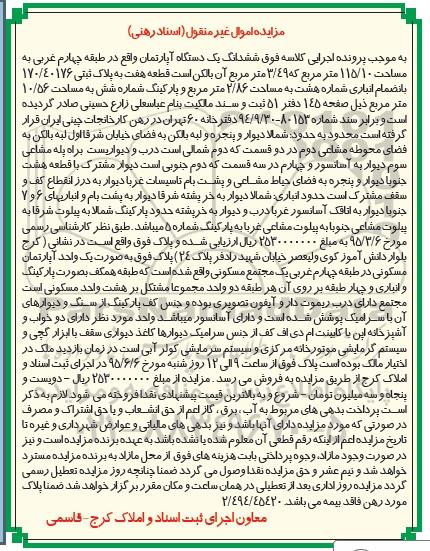 مزایده اموال غیر منقول (اسناد رهنی)
به موجب پرونده اجرایی کلاسه فوق ششدانگ یک دستگاه آپارتمان واقع در طبقه چهارم غربی به
مساحت ۱۱۵/۱۰ متر مربع که ۳/۴۹ متر مربع آن بالکن است قطعه هفت به پلاک ثبتی ۱۷۰/۴۰۱۷۶
بانضمام انباری شماره هشت به مساحت ۲/۸۶ متر مربع و پارکینگ شماره شش به مساحت ۱۰/۵۶
متر مربع ذیل صفحه ۱۴۵ دفتر ۵۱ ثبت و سند مالکیت بنام عباسعلی زارع حسینی صادر گردیده
است و برابر سند شماره ۸۰۱۵۳-۹۴/۹/۳۰ دفترخانه ۶۰ تهران در رهن کارخانجات چینی ایران قرار
گرفته است محدود به حدود: شمالا دیوار و پنجره و لبه بالکن به فضای خیابان شرقا اول لبه بالکن به
فضای محوطه مشاعی دوم در دو قسمت که دوم شمالی است درب و دیواریست به راه پله مشاعی
سوم دیوار به آسانسور و چهارم در سه قسمت که دوم جنوبی است دیوار مشترک با قطعه هشت
جنوبا دیوار و پنجره به فضای حیاط مشاعی و پشت بام تاسیسات غربا دیوار به درز انقطاع کف و
سقف مشترک است حدود انباری: شمالا دیوار به خر پشته شرقا دیوار به پشت بام و انباریهای ۶ و ۷
جنوبا دیوار به اتاقک آسانسور غربا درب و دیوار به خرپشته حدود پارکینگ شمالا به پیلوت شرقا به
پیلوت مشاعی جنوبا به پیلوت مشاعی غربا به پارکینگ شماره ۵ میباشد. طبق نظر کارشناسی رسمی
مورخ ۹۵/۳/۶ به مبلغ ۲۵۳۰۰۰۰۰۰۰ ریال ارزیابی شده و پلاک فوق واقع است در نشانی (کرج
بلوار دانش آموز کوی ولیعصر خیابان شهید رادفر پلاک ۲۴) پلاک فوق به صورت یک واحد آپارتمان
مسکونی در طبقه چهارم غربی یک مجتمع مسکونی واقع شده است که طبقه همکف بصورت پارکینگ
و انباری و چهار طبقه بر روی آن هر طبقه دو واحد مجموعا مشتکل بر هشت واحد مسکونی است
مجتمع دارای درب ریموت دار و آیفون تصویری بوده و جنس کف پارکینگ از سنگ و دیوارهای
آن با سرامیک پوشش شده است و دارای آسانسور میباشد واحد مورد نظر دارای دو خواب و
آشپزخانه اپن با کابینت ام دی اف کف از جنس سرامیک دیوارها کاغذ دیواری سقف با ابزار گچی و
سیستم گرمایشی موتورخانه مرکزی و سیستم سرمایشی کولر آبی است در زمان بازدید ملک در
اختیار مالک بوده است پلاک فوق از ساعت ۹ الی ۱۲ روز شنبه مورخ ۹۵/۶/۶ در اجرای ثبت اسناد و
املاک کرج از طریق مزایده به فروش می رسد. مزایده از مبلغ ۲۵۳۰۰۰۰۰۰۰ ریال - دویست و
پنجاه و سه میلیون تومان - شروع و به بالاترین قیمت پیشنهادی نقدا فروخته می شود. لازم به ذکر
است پرداخت بدهی های مربوطه به آب، برق، گاز اعم از حق انشعاب و یا حق اشتراک و مصرف
در صورتی که مورد مزایده دارای آنها باشد و نیز بدهی های مالیاتی و عوارض شهرداری و غیره تا
تاریخ مزایده اعم از اینکه رقم قطعی آن معلوم شده یا نشده باشد به عهده برنده مزایده است و نیز
در صورت وجود مازاد، وجوه پرداختی بابت هزینه های فوق از محل مازاد به برنده مزایده مسترد
خواهد شد و نیم عشر و حق مزایده نقدا وصول می گردد ضمنا چنانچه روز مزایده تعطیل رسمی
گردد مزایده روز اداری بعد از تعطیلی در همان ساعت و مکان مقرر برگزار خواهد شد ضمنا پلاک
مورد رهن فاقد بیمه می باشد. ۲/۴۹۴/۴۵۴۲۰
معاون اجرای ثبت اسناد و املاک کرج - قاسمی